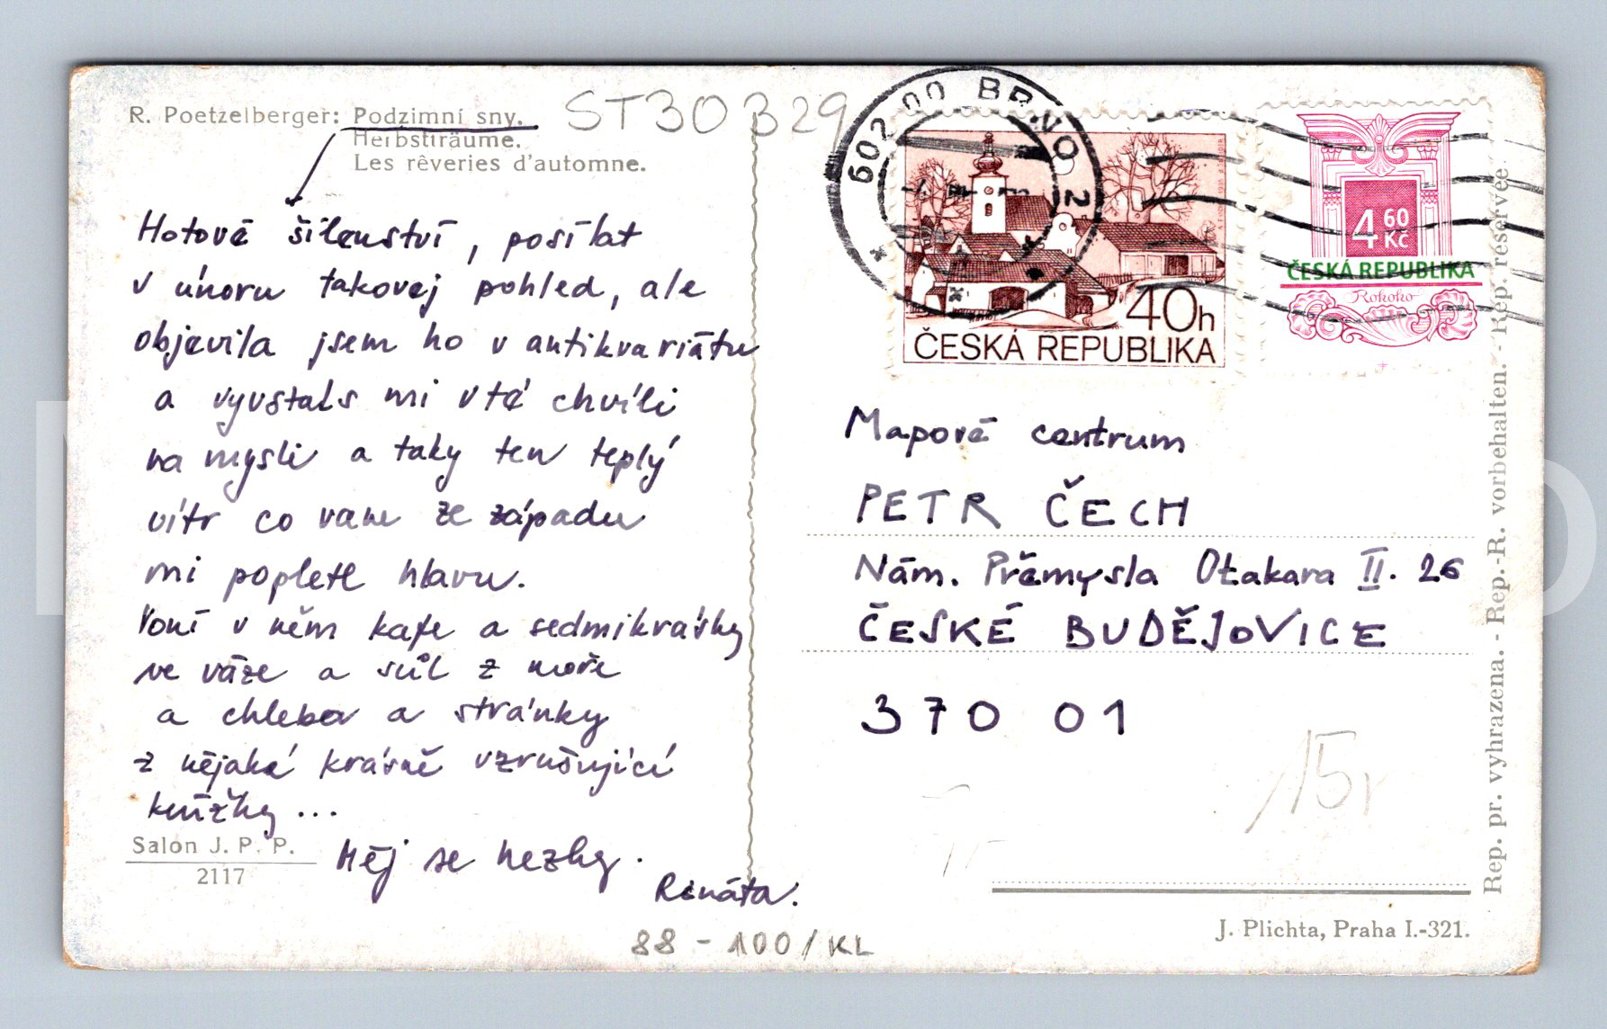 R. Poetzelberger: Podzimní sny.
Herbstträume.
Les rêveries d'automne.
ST30B29
Hotové šílenství, posílat
v únoru takovej pohled, ale
objevila jsem ho v antikvariátu
a vyvstals mi v té chvíli
na mysli a taky ten teplý
vítr co vane ze západu
mi poplete hlavu.
Voní v něm kafe a sedmikrásky
ve váze a sůl z moře
a chleba a stránky
z nějaké krásně vzrušující
knížky...
Měj se hezky.
Renáta.
Salon J. P. P.
2117
88 - 100/KL
602 00 BRNO 2
40h
ČESKÁ REPUBLIKA
4 60 Kč
ČESKÁ REPUBLIKA
Rokoko
Mapové centrum
PETR ČECH
Nám. Přemysla Otakara II. 26
ČESKÉ BUDĚJOVICE
370 01
J. Plichta, Praha I.-321.
Rep. pr. vyhrazena. - Rep.-R. vorbehalten. - Rep. réservée